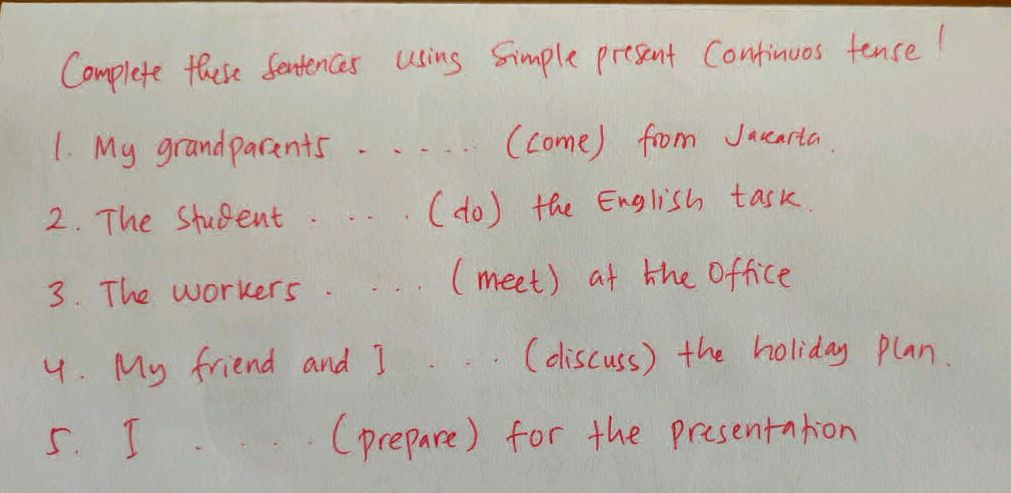 Complete these sentences using Simple present Continuos tense!
1. My grandparents ...... (come) from Jakarta.
2. The Student ..... (do) the English task.
3. The workers ..... (meet) at the Office
4. My friend and I .... (discuss) the holiday plan.
5. I ..... (prepare) for the presentation